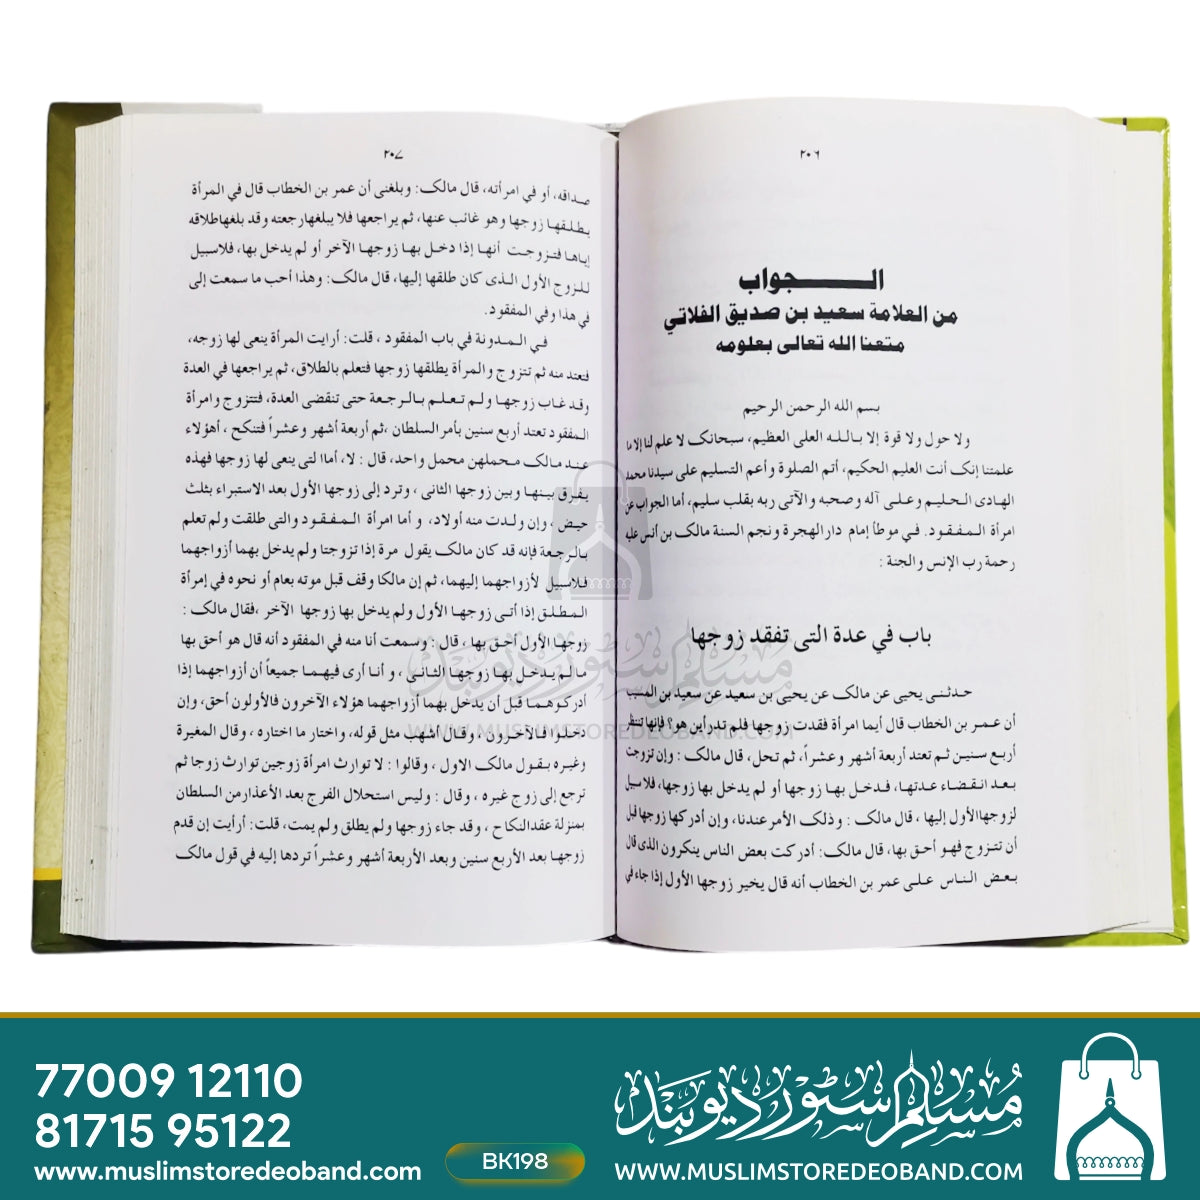 ٢٠٦
الـــــجواب
من العلامة سعيد بن صديق الفلاتي
متعنا الله تعالى بعلومه
بسم الله الرحمن الرحيم
ولا حول ولا قوة إلا بالله العلى العظيم، سبحانك لا علم لنا إلا ما
علمتنا إنك أنت العليم الحكيم، أتم الصلوة وأعم التسليم على سيدنا محمد
الهادى الحليم وعلى آله وصحبه والآتى ربه بقلب سليم، أما الجواب عن
امرأة المفقود. في موطأ إمام دار الهجرة ونجم السنة مالك بن أنس عليه
رحمة رب الإنس والجنة :
باب في عدة التى تفقد زوجها
حدثنى يحيى عن مالك عن يحيى بن سعيد عن سعيد بن المسيب
أن عمر بن الخطاب قال أيما امرأة فقدت زوجها فلم تدر أين هو؟ فإنها تنتظر
أربع سنين ثم تعتد أربعة أشهر وعشراً، ثم تحل، قال مالك : وإن تزوجت
بعد انقضاء عدتها، فدخل بها زوجها أو لم يدخل بها زوجها، فلاسبيل
لزوجها الأول إليها ، قال مالك : وذلك الأمر عندنا، وإن أدركها زوجها قبل
أن تتزوج فهو أحق بها، قال مالك: أدركت بعض الناس ينكرون الذى قال
بعض الناس على عمر بن الخطاب أنه قال يخير زوجها الأول إذا جاء في
٢٠٧
صداقه، أو في امرأته، قال مالك: وبلغنى أن عمر بن الخطاب قال في المرأة
يطلقها زوجها وهو غائب عنها، ثم يراجعها فلا يبلغها رجعته وقد بلغها طلاقه
إياها فتزوجت أنها إذا دخل بها زوجها الآخر أو لم يدخل بها، فلاسبيل
للزوج الأول الذى كان طلقها إليها، قال مالك: وهذا أحب ما سمعت إلى
في هذا وفي المفقود.
في المدونة في باب المفقود ، قلت: أرايت المرأة ينعى لها زوجه،
فتعتد منه ثم تتزوج والمرأة يطلقها زوجها فتعلم بالطلاق، ثم يراجعها في العدة
وقد غاب زوجها ولم تعلم بالرجعة حتى تنقضى العدة، فتتزوج وامرأة
المفقود تعتد أربع سنين بأمر السلطان ،ثم أربعة أشهر وعشراً فتنكح ، أهؤلاء
عند مالك محملهن محمل واحد، قال : لا، أما التى ينعى لها زوجها فهذه
يفرق بينها وبين زوجها الثانى ، وترد إلى زوجها الأول بعد الاستبراء بثلث
حيض، وإن ولدت منه أولاد، و أما امرأة المفقود والتى طلقت ولم تعلم
بالرجعة فإنه قد كان مالك يقول مرة إذا تزوجتا ولم يدخل بهما أزواجهما
فلاسبيل لأزواجهما إليهما، ثم إن مالكا وقف قبل موته بعام أو نحوه في إمرأة
المطلق إذا أتى زوجها الأول ولم يدخل بها زوجها الآخر ،فقال مالك :
زوجها الأول أحق بها ، قال : وسمعت أنا منه في المفقود أنه قال هو أحق بها
مالم يدخل بها زوجها الثانى ، و أنا أرى فيهما جميعاً أن أزواجهما إذا
أدركوهما قبل أن يدخل بهما أزواجهما هؤلاء الآخرون فالأولون أحق، وإن
دخلوا فالآخرون ، وقال أشهب مثل قوله، واختار ما اختاره ، وقال المغيرة
وغيره بقول مالك الاول ، وقالوا : لا توارث امرأة زوجين توارث زوجا ثم
ترجع إلى زوج غيره ، وقال : وليس استحلال الفرج بعد الأعذار من السلطان
بمنزلة عقد النكاح ، وقد جاء زوجها ولم يطلق ولم يمت، قلت: أرأيت إن قدم
زوجها بعد الأربع سنين وبعد الأربعة أشهر وعشراً تردها إليه في قول مالك
مسلم سٹور دیوبند
WWW.MUSLIMSTOREDEOBAND.COM
77009 12110
81715 95122
www.muslimstoredeoband.com
BK198
مسلم سٹور دیوبند
WWW.MUSLIMSTOREDEOBAND.COM